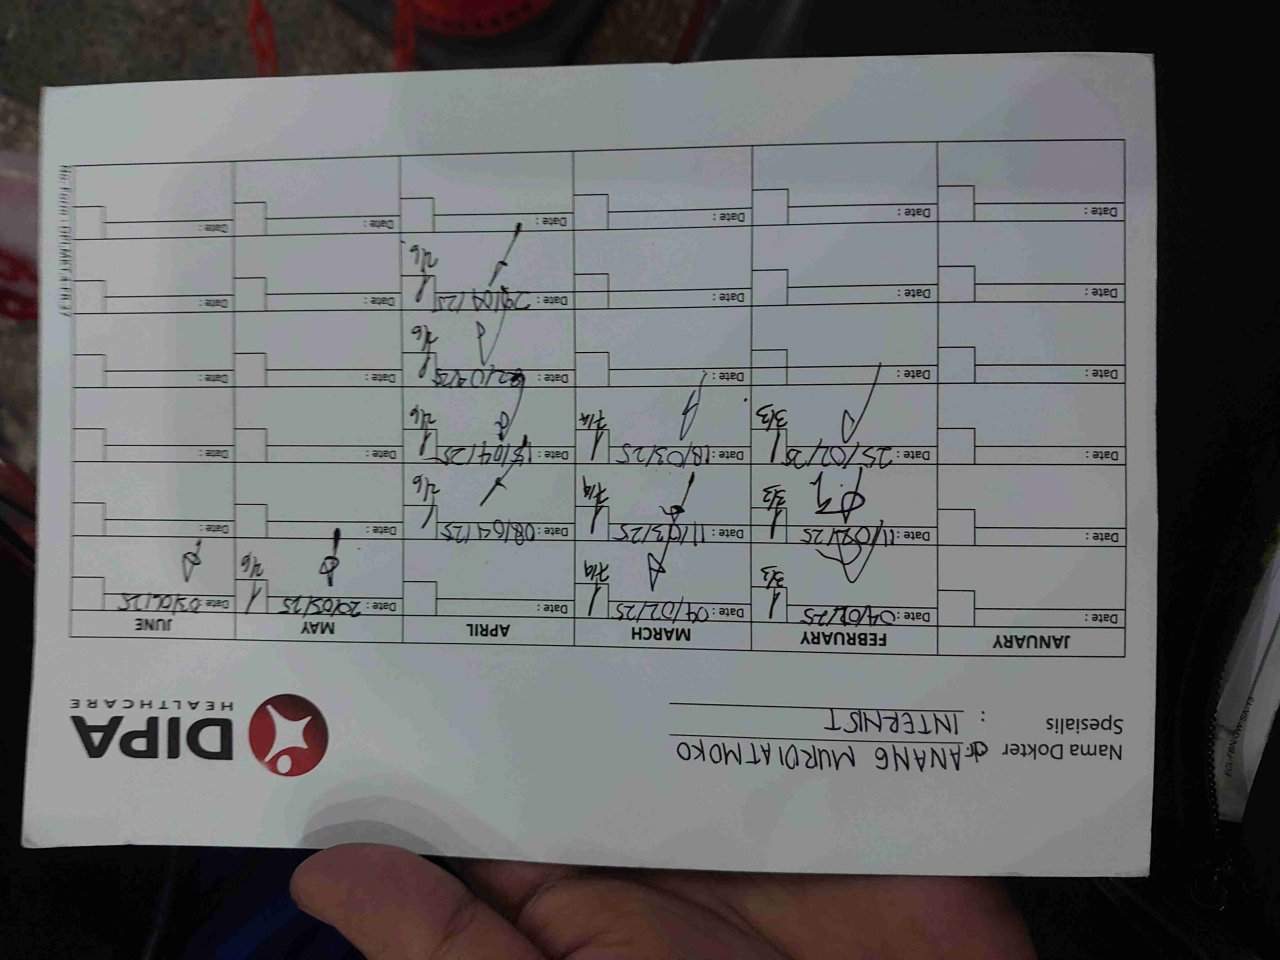 Nama Dokter dr ANANG MURDIATMOKO
Spesialis : INTERNIST
DIPA
HEALTHCARE
JANUARY FEBRUARY MARCH APRIL MAY JUNE
Date : Date : 04/02/25 Date : 04/02/25 Date : Date : 20/05/25 Date : 03/06/25
3/3 7/4 2/6
Date : Date : 11/02/25 Date : 11/03/25 Date : 08/04/25 Date : Date :
3/3 7/4 2/6
Date : Date : 25/02/25 Date : 18/03/25 Date : 15/04/25 Date : Date :
3/3 7/4 2/6
Date : Date : Date : Date : 22/04/25 Date : Date :
2/6
Date : Date : Date : Date : 29/04/25 Date : Date :
2/6
Date : Date : Date : Date : Date : Date :